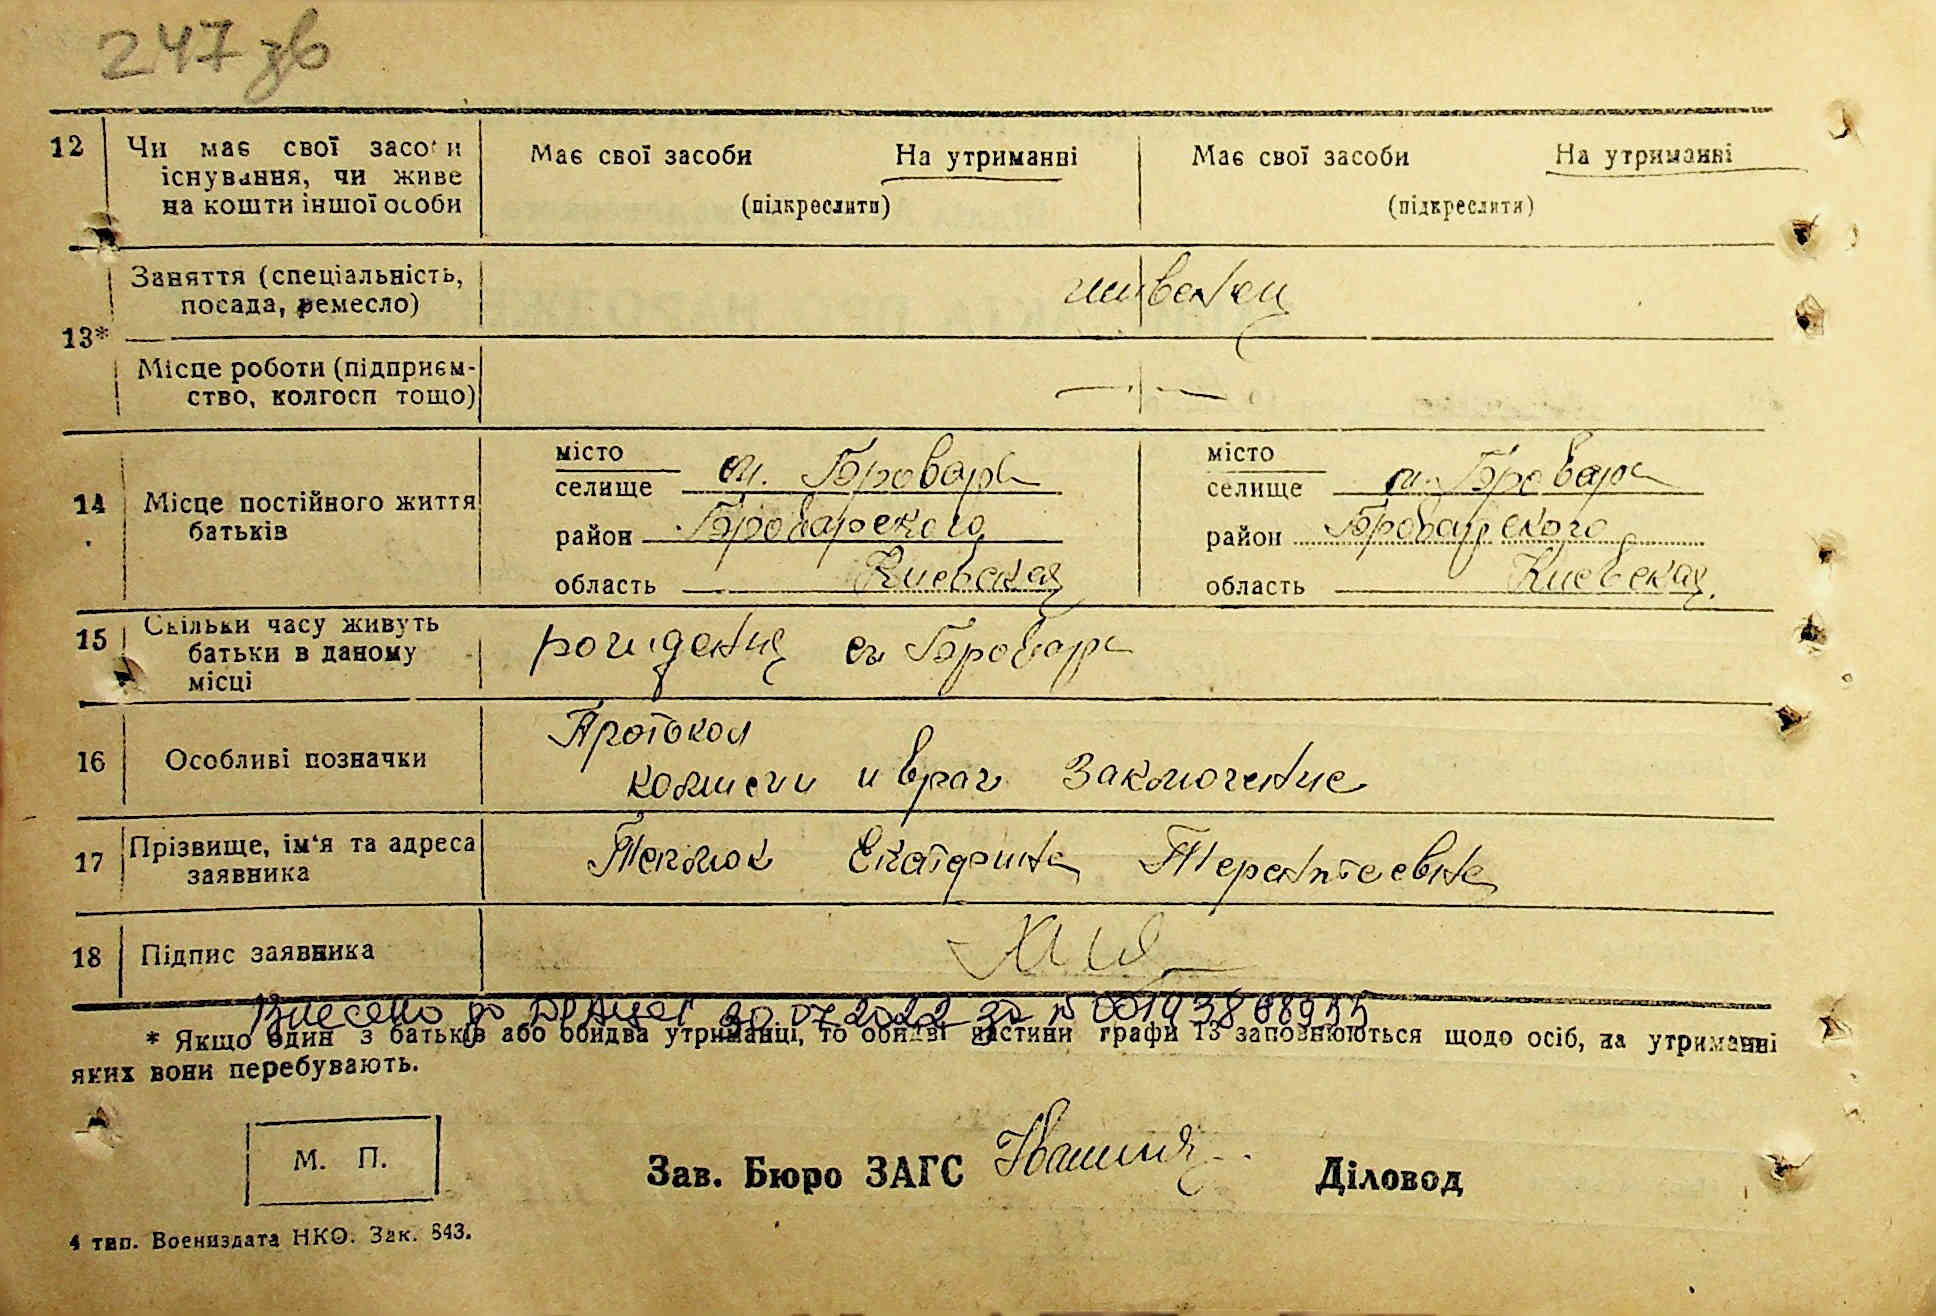 247 зв
12 Чи має свої засоби Має свої засоби На утриманні Має свої засоби На утриманні
існування, чи живе
на кошти іншої особи (підкреслити) (підкреслити)
Заняття (спеціальність,
посада, ремесло)
13*
Місце роботи (підприєм-
ство, колгосп тощо)
місто місто
селище м. Бровары селище м. Бровары
14 Місце постійного життя
батьків
район Броварского район Броварского
область Киевская область Киевская.
15 Скільки часу живуть
батьки в даному
місці
рождения Бровары
Протокол
16 Особливі позначки
комисии и врач заключение
17 Прізвище, ім'я та адреса
заявника
Теплюк Екатерина Терентеевна
18 Підпис заявника
Внесено до ДРАЦСГ 30.07.2022 за № 00193868955
* Якщо один з батьків або обидва утриманці, то обидві частини графи 13 заповнюються щодо осіб, на утриманні
яких вони перебувають.
М. П.
Зав. Бюро ЗАГС Діловод
4 тип. Воениздата НКО. Зак. 843.